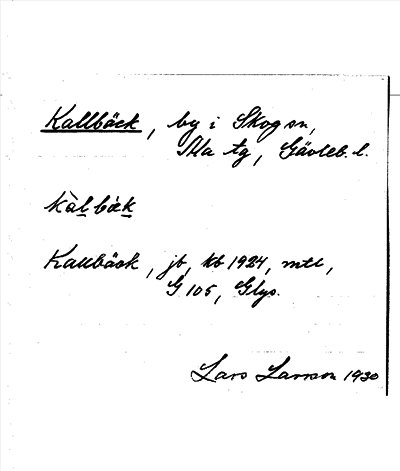 Kallbäck, by i Skog sn,
Ala tg, Gävleb. l.
kàl bäk
Kallbäck, jb, kb 1924, mtl,
G 105, Glys.
Lars Larsson 1930